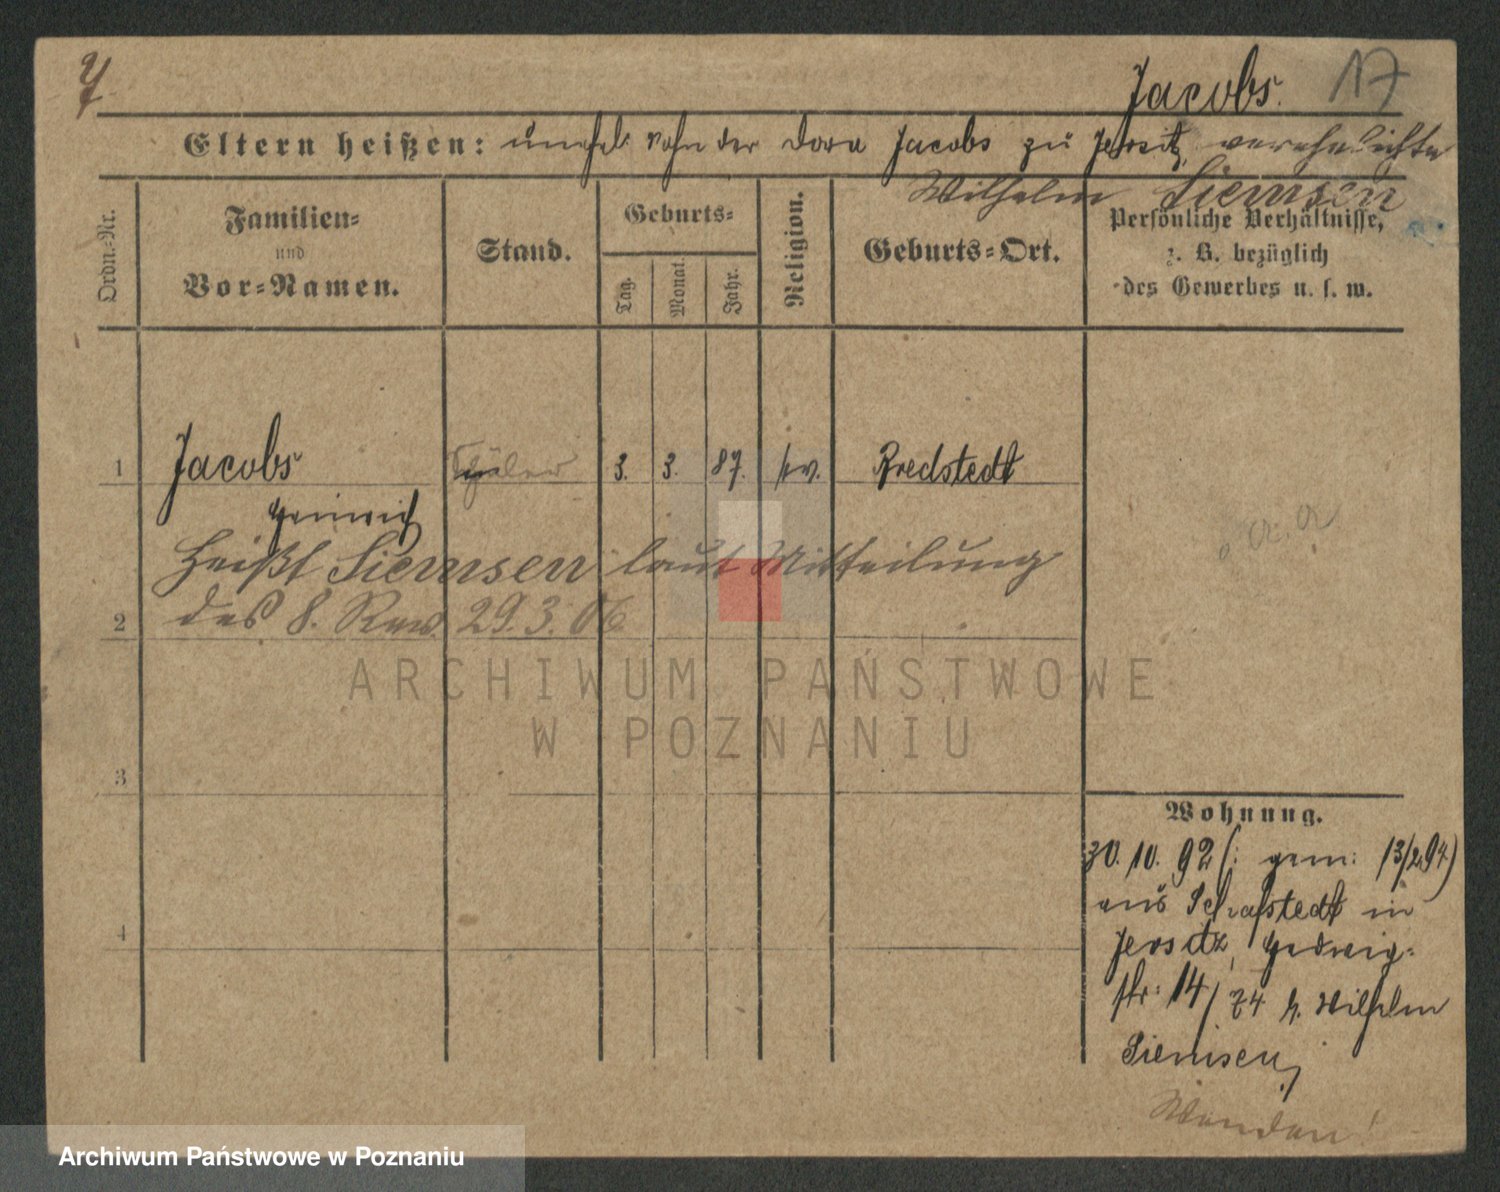 Jacobs. 17
Eltern heißen: unehel. Sohn der Dora Jacobs zu Jersitz, verehelichte
Wilhelm Siemsen
Ordn.-Nr.
Familien-
und
Vor-Namen.
Stand.
Geburts-
Tag.
Monat.
Jahr.
Religion.
Geburts-Ort.
Persönliche Verhältnisse,
z. B. bezüglich
des Gewerbes u. s. w.
1 Jacobs Schüler 3. 3. 87. ev. Bredstedt
Heinrich
heißt Siemsen laut Mitteilung
des 8. Rev. 29.3.06
2
3
4
Wohnung.
30. 10. 92 (: gem: 13/2 94)
aus Schafstedt in
Jersitz, Hedwig-
str: 14/ 74 b. Wilhelm
Siemsen,
Wenden!
ARCHIWUM PAŃSTWOWE
W POZNANIU
Archiwum Państwowe w Poznaniu